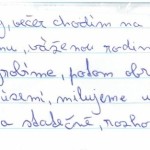 , večer chodím na
mu, váženou rodin
robíme, potom obr
území, milujeme u
a statečně, rozho